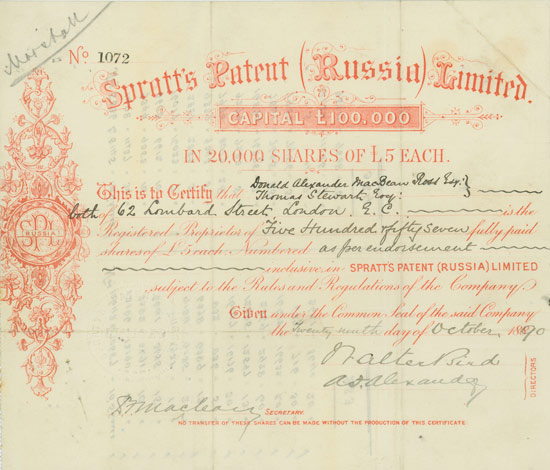 Marshall
No 1072
Spratt's Patent (Russia) Limited.
CAPITAL £100,000
IN 20,000 SHARES OF £5 EACH.
This is to Certify that Donald Alexander MacBean Ross Esq: }
Thomas Stewart Esq:
both of 62 Lombard Street, London, E.C. is the
Registered Proprietor of Five Hundred & fifty seven fully paid
shares of £5 each Numbered as per endorsement
inclusive in SPRATT'S PATENT (RUSSIA) LIMITED
subject to the Rules and Regulations of the Company.
Given under the Common Seal of the said Company
the Twenty ninth day of October 1890
RUSSIA
Walter Bird
DIRECTORS
SECRETARY.
NO TRANSFER OF THESE SHARES CAN BE MADE WITHOUT THE PRODUCTION OF THIS CERTIFICATE